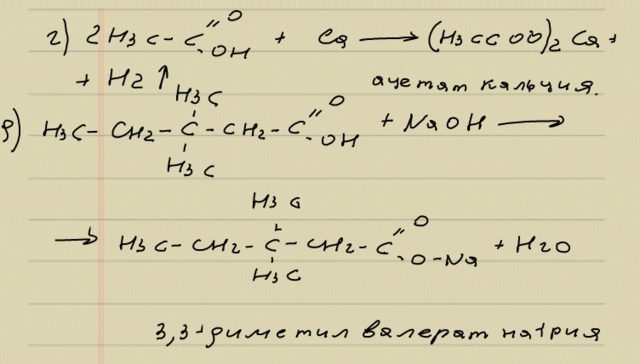 г) 2 H3C – C =O OH + Ca ⟶ (H3CCOO)2 Ca +
+ H2 ↑ ацетат кальция.
H3C
д) H3C – CH2 – C – CH2 – C =O OH + NaOH ⟶
H3C
H3C
⟶ H3C – CH2 – C – CH2 – C =O O–Na + H2O
H3C
3,3-диметил валерат натрия